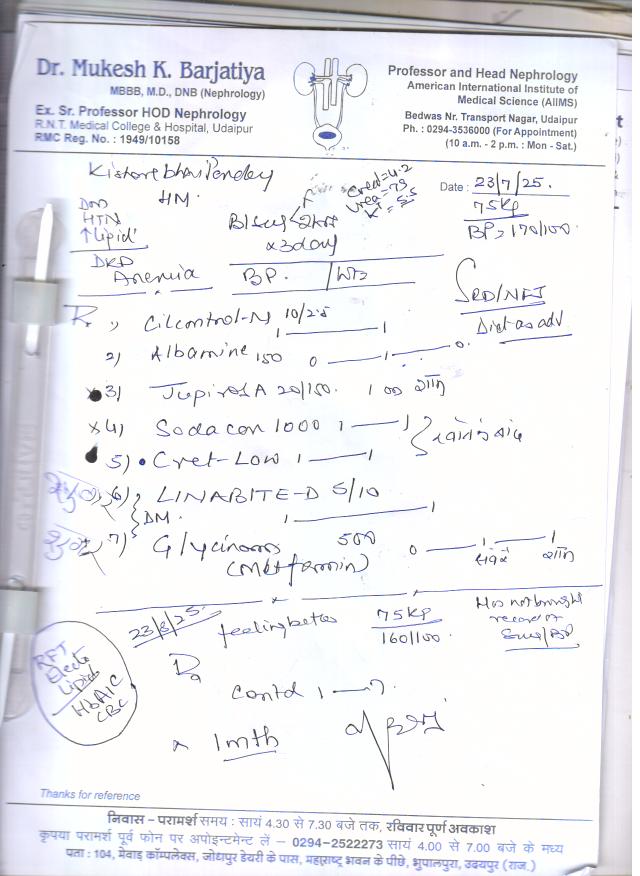 Dr. Mukesh K. Barjatiya
MBBB, M.D., DNB (Nephrology)
Ex. Sr. Professor HOD Nephrology
R.N.T. Medical College & Hospital, Udaipur
RMC Reg. No. : 1949/10158
Professor and Head Nephrology
American International Institute of
Medical Science (AIIMS)
Bedwas Nr. Transport Nagar, Udaipur
Ph. : 0294-3536000 (For Appointment)
(10 a.m. - 2 p.m. : Mon - Sat.)
Kishorebhai Pandey
HM.
Creat=4.2
Urea=79
K+=5.5
Date : 23/7/25.
75Kg
BP> 170/100.
DM
HTN
↑Lipid
x3day
DKD
Anemia
BP. / Wt
SRD/NFJ
Diet as adv
R
1) Cilcontrol-N 10/25 1——1
2) Albamine 150 0——1——0
x3) JupirosA 20/150. 1 शाम
x4) Sodacon 1000 1——1
5) • Cret-Low 1——1
6) LINABITE-D 5/10
DM. 1——1
7) Glycinorm 500 0——1——1
(Metformin) शाम
23/8/25. feeling better 75Kg
160/100.
Has not brought
record of
RFT
Electo
Lipid
HbA1C
CBC
Contd 1——7.
x 1mth
Thanks for reference
निवास – परामर्श समय : सायं 4.30 से 7.30 बजे तक, रविवार पूर्ण अवकाश
कृपया परामर्श पूर्व फोन पर अपोइन्टमेन्ट लें – 0294-2522273 सायं 4.00 से 7.00 बजे के मध्य
पता : 104, मेवाड़ कॉम्पलेक्स, जोधपुर डेयरी के पास, महाराष्ट्र भवन के पीछे, भुपालपुरा, उदयपुर (राज.)